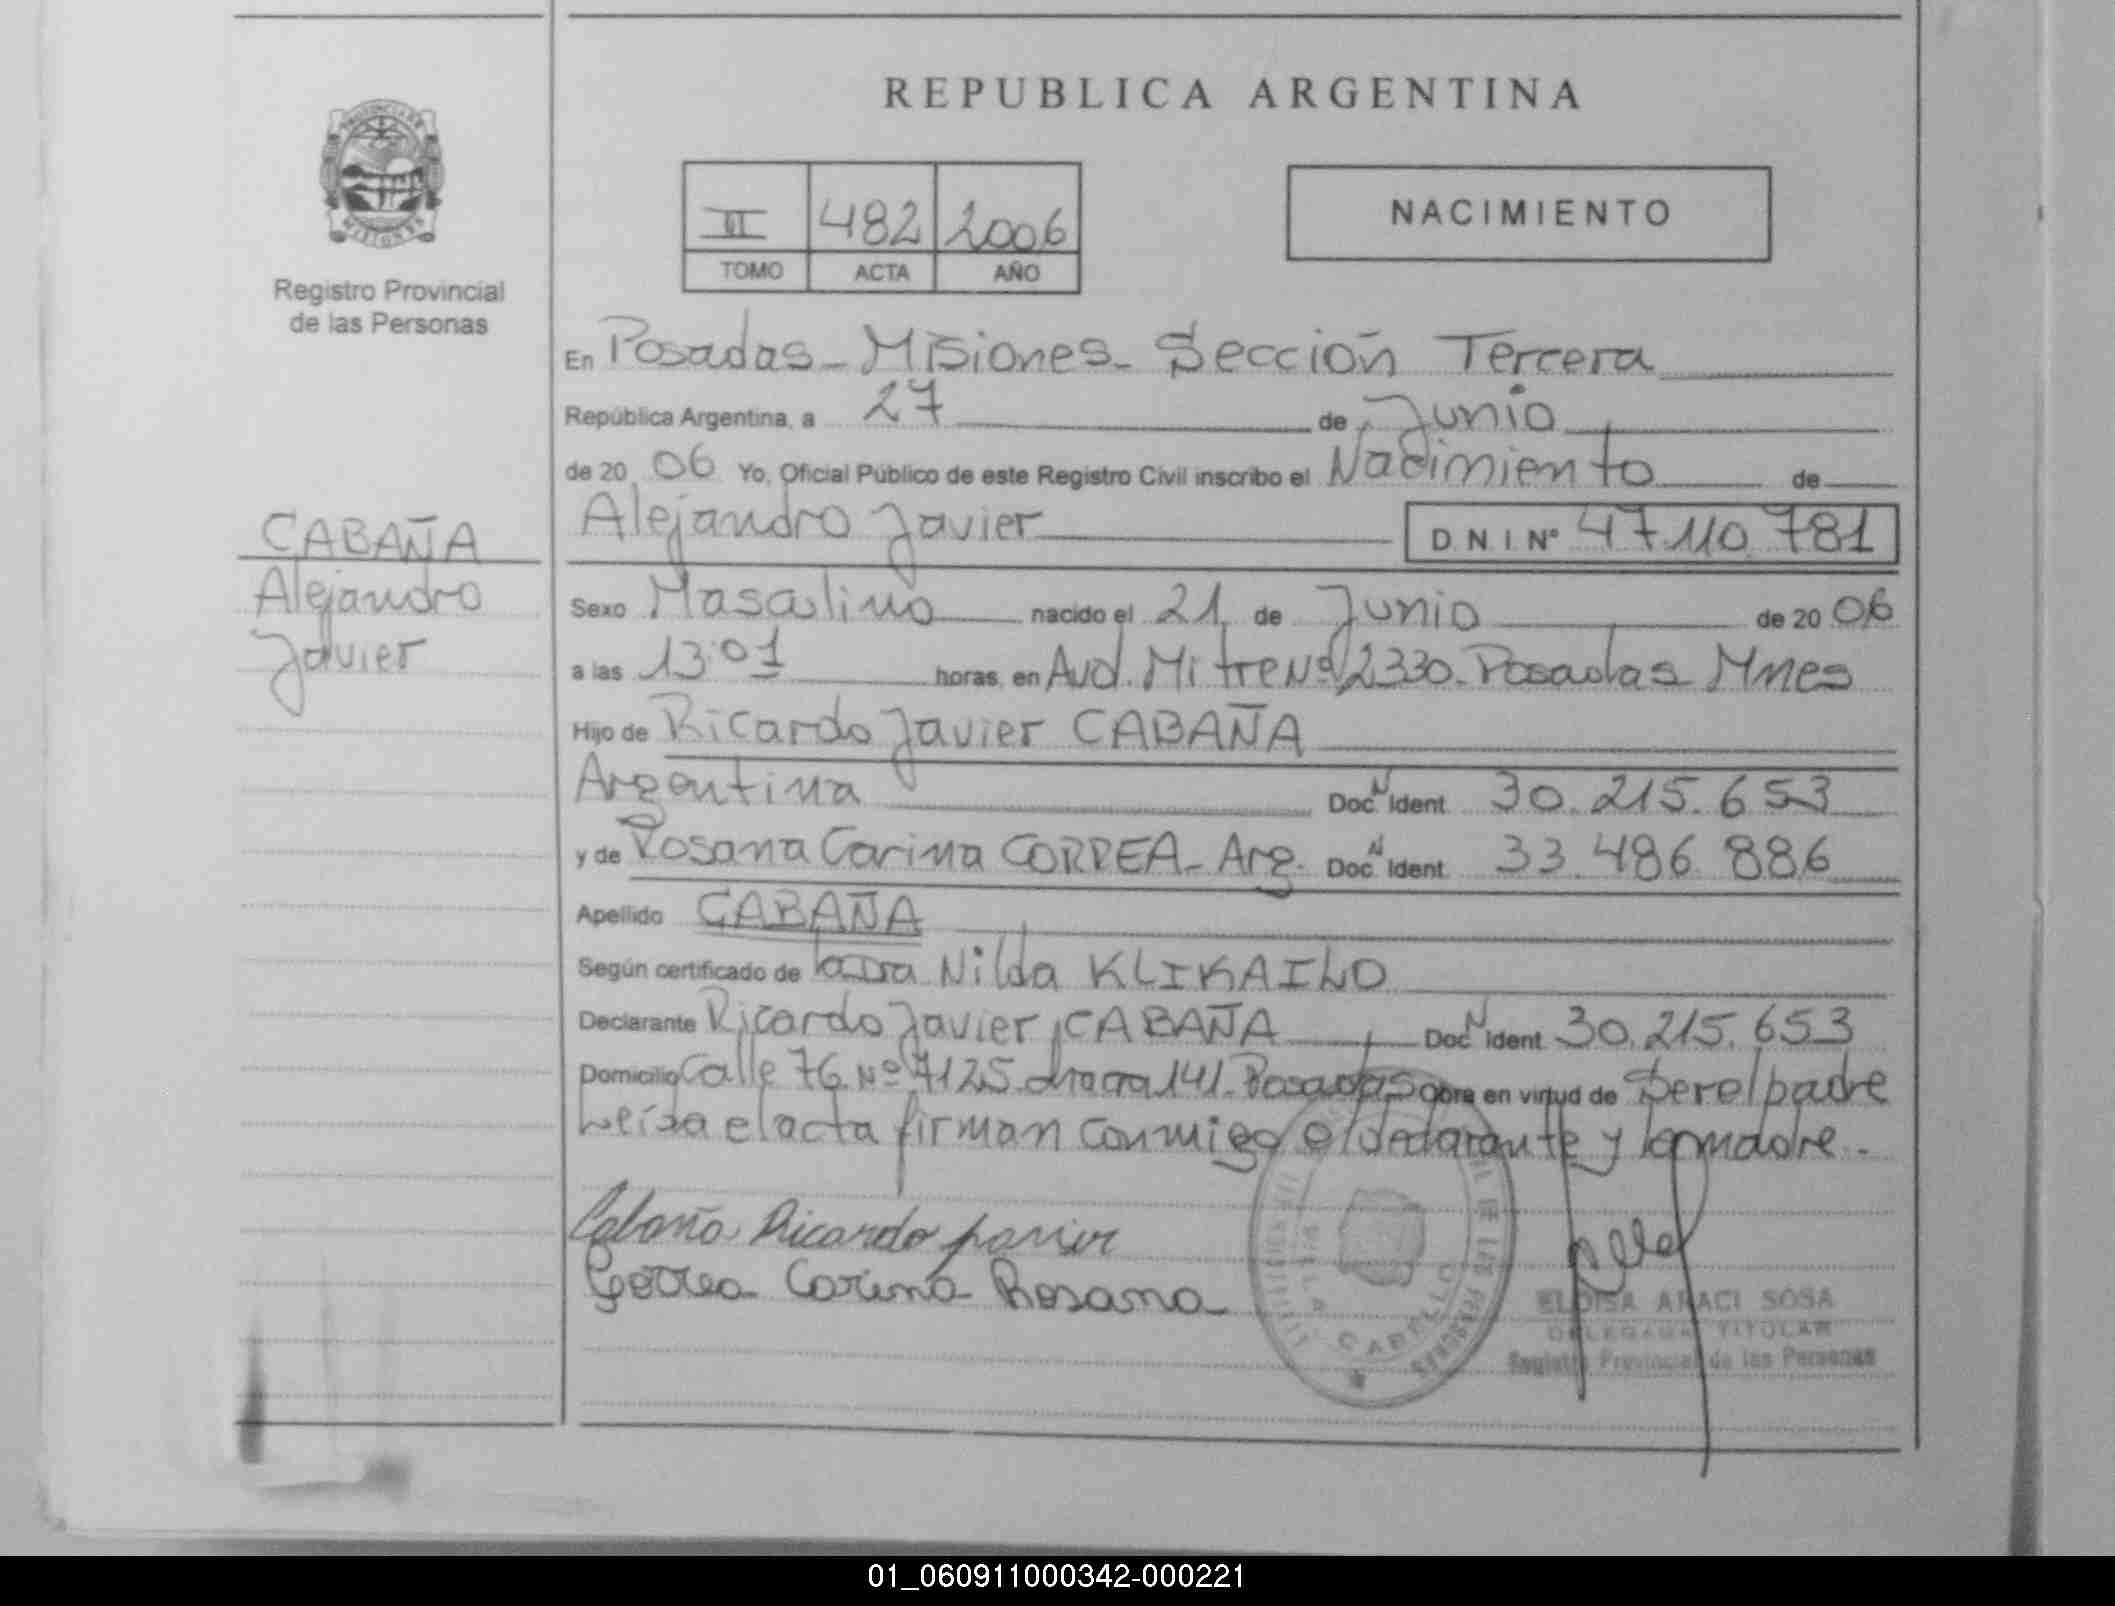 REPUBLICA ARGENTINA
PROVINCIA DE
MISIONES
Registro Provincial
de las Personas
II 482 2006
TOMO ACTA AÑO
NACIMIENTO
En Posadas - Misiones - Sección Tercera
República Argentina, a 27 de Junio
de 20 06 Yo, Oficial Público de este Registro Civil inscribo el Nacimiento de
Alejandro Javier D.N.I. Nº 47.110.781
CABAÑA
Alejandro
Javier
Sexo Masculino nacido el 21 de Junio de 20 06
a las 13:01 horas, en Avd. Mitre Nº 2330 - Posadas Mnes
Hijo de Ricardo Javier CABAÑA
Argentina Doc. N Ident. 30.215.653
y de Rosana Carina CORREA - Arg. Doc. N Ident. 33.486.886
Apellido CABAÑA
Según certificado de la Dra Nilda KLIKAILO
Declarante Ricardo Javier CABAÑA Doc. N Ident. 30.215.653
Domicilio Calle 76 Nº 7125 chacra 141 - Posadas Obra en virtud de Ser el padre
Leída el acta firman conmigo el declarante y la madre.
Cabaña Ricardo javier
Correa Carina Rosana
VILLA CABELLO
DE LAS PERSONAS
ELOISA ARACI SOSA
DELEGADA TITULAR
Registro Provincial de las Personas
01_060911000342-000221